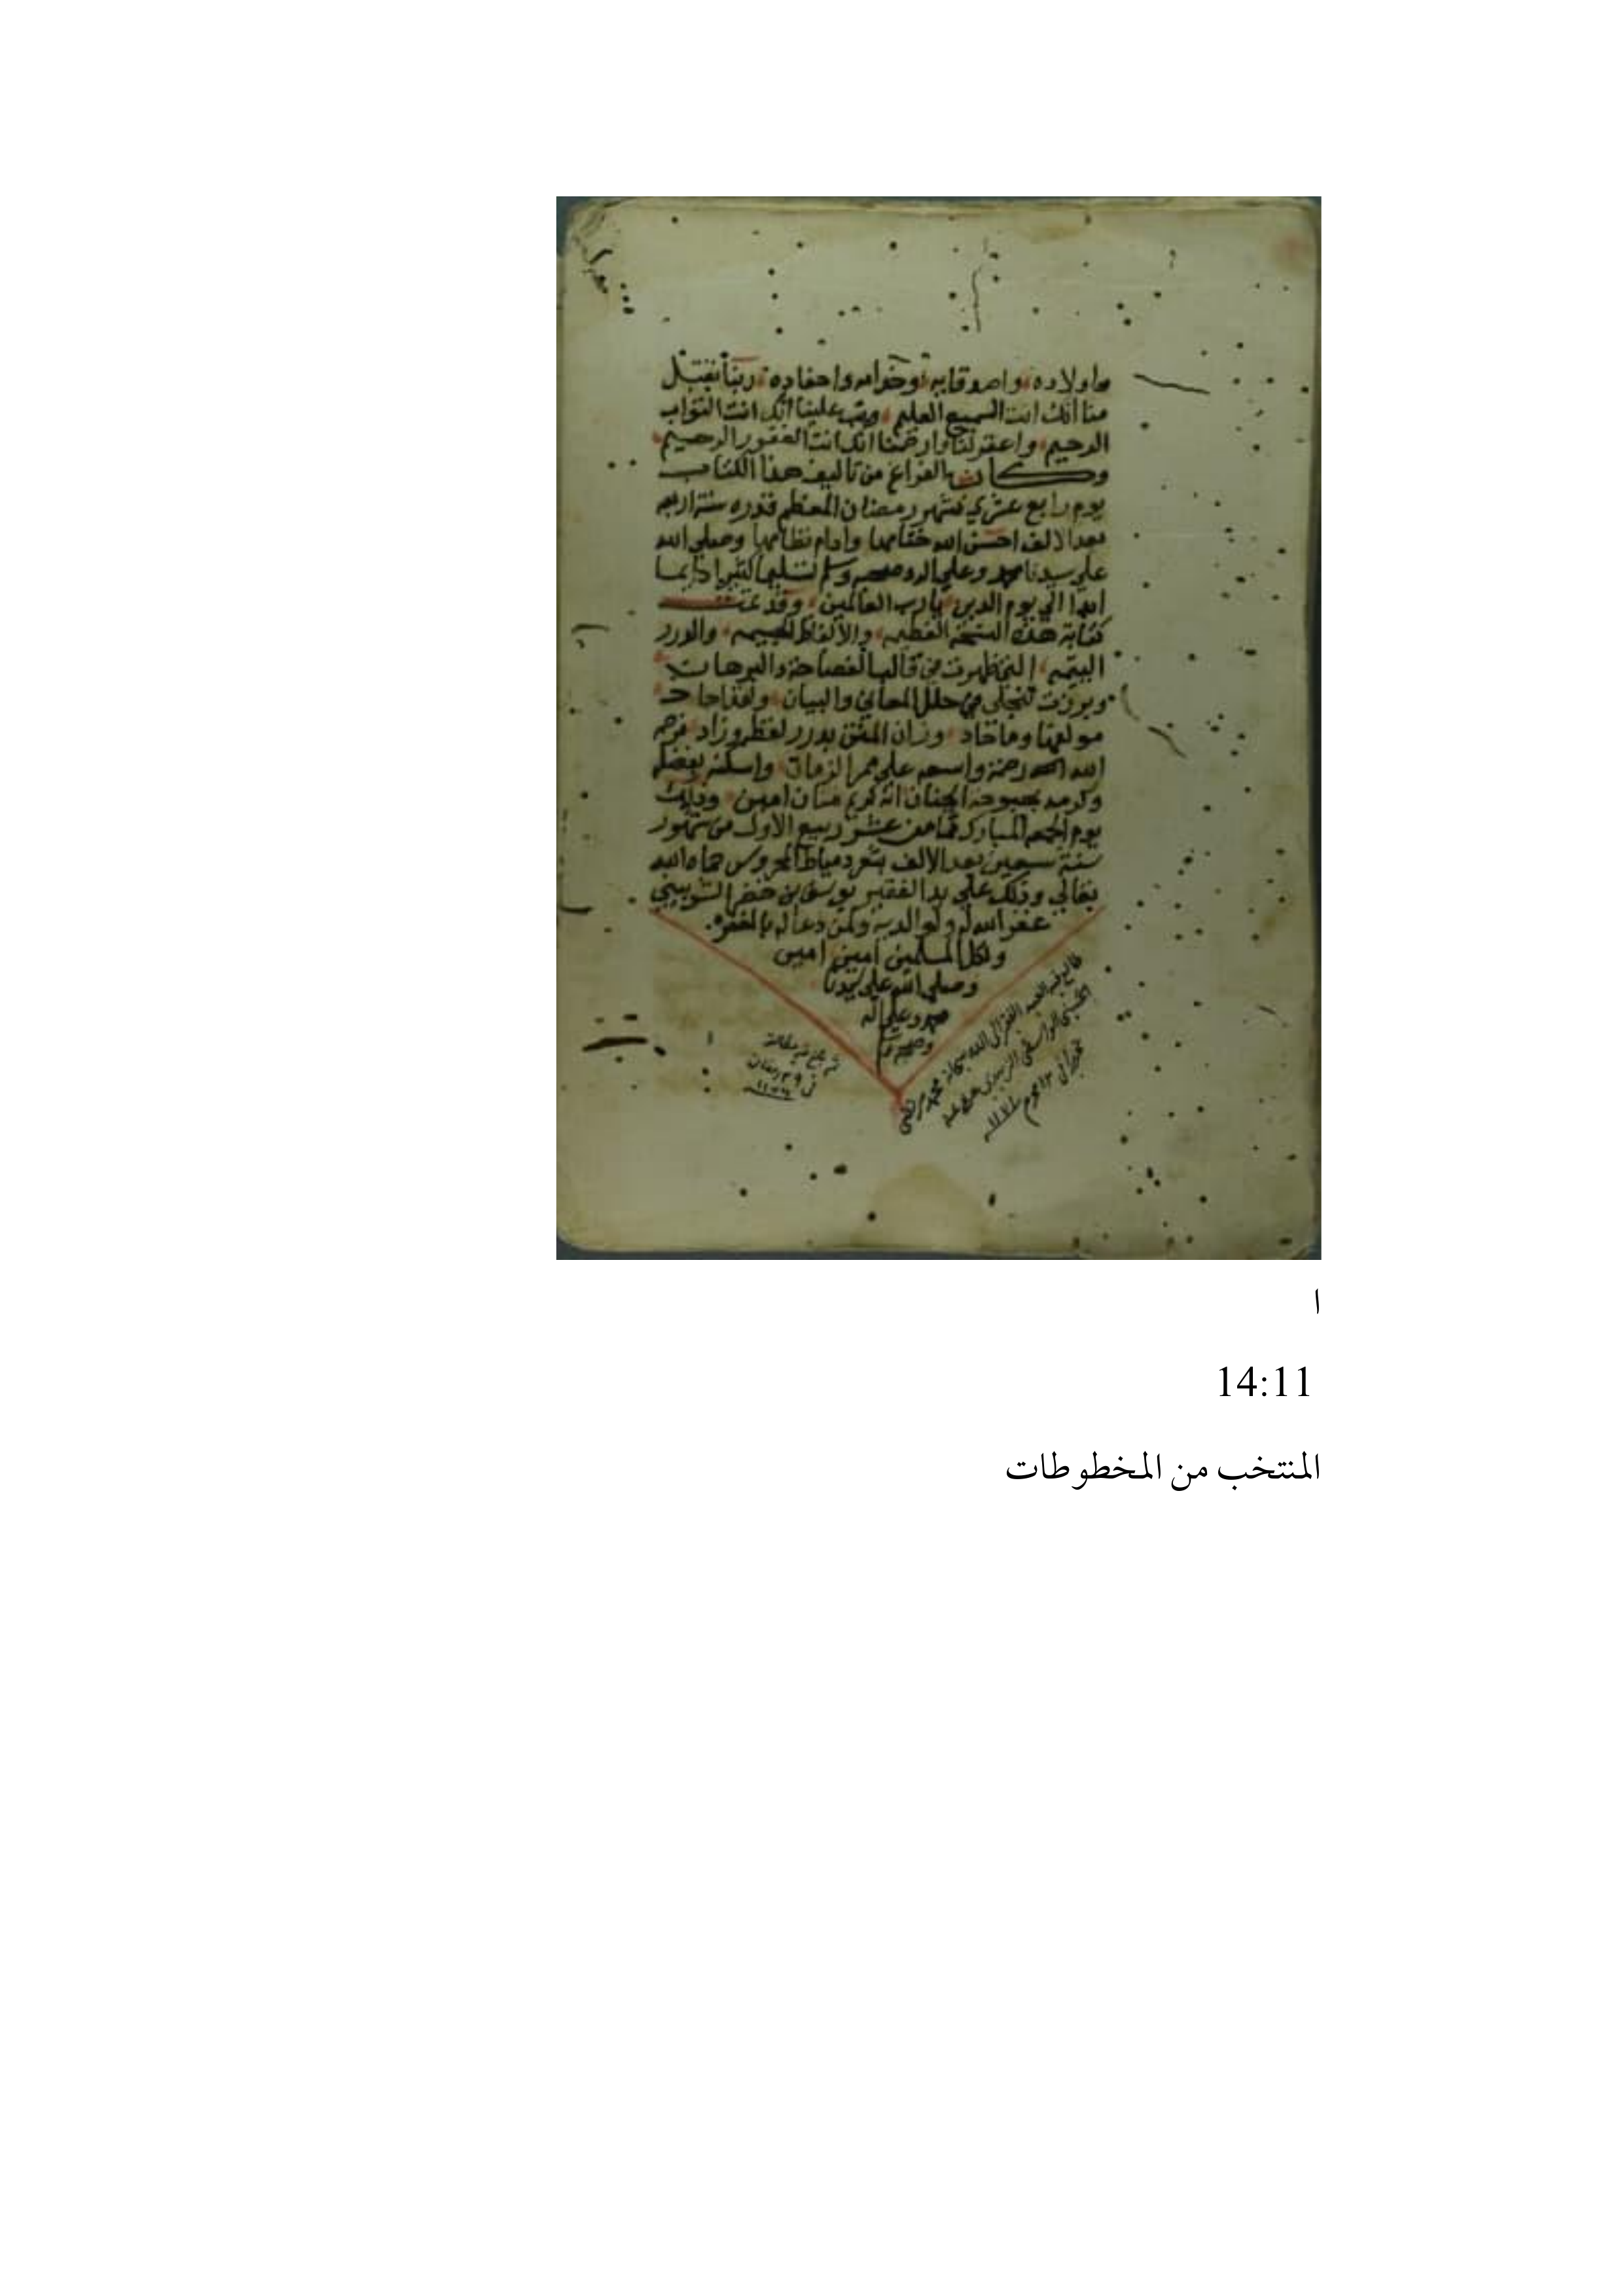 واولاده واصدقايه وخدامه واحفاده ربنا تقبل
منا انك انت السميع العليم وتب علينا انك انت التواب
الرحيم واغفر لنا وارحمنا انك انت الغفور الرحيم
وكان الفراغ من تاليف هذا الكتاب
يوم رابع عشري شهر رمضان المعظم قدره سنة اربع
بعد الالف احسن الله ختامها وادام نظامها وصلي الله
علي سيدنا محمد وعلي اله وصحبه وسلم تسليما كثيرا دايما
ابدا الي يوم الدين يا رب العالمين وقد تمت
كتابة هذه النسخة العظيمه والالفاظ الجسيمه والدرر
اليتيمه التي ظهرت في قالب الفصاحة والبرهان
وبرزت تنجلي في حلل المعاني والبيان ولقد اجاد
مولفها وما حاد وزان المتن بدرر لفظه وزاد فرحم
الله رحمة واسعه علي ممر الزمان واسكنه بفضله
وكرمه بحبوحة الجنان انه كريم منان امين وذلك
يوم الجمعه المبارك ثامن عشر ربيع الاول من شهور
سنة سبعين بعد الالف بثغر دمياط المحروس حماه الله
تعالي وذلك علي يد الفقير يوسف بن خضر الشوبيني
غفر الله له ولوالديه ولمن دعا له بالمغفره
ولكل المسلمين امين امين
وصلي الله علي سيدنا
محمد وعلي اله
وصحبه وسلم
طالع فيه العبد الفقير الى الله سبحانه محمد مرتضى
الحسيني الواسطي الزبيدي
في محرم
ثم
في رمضان
ا
14:11
المنتخب من المخطوطات